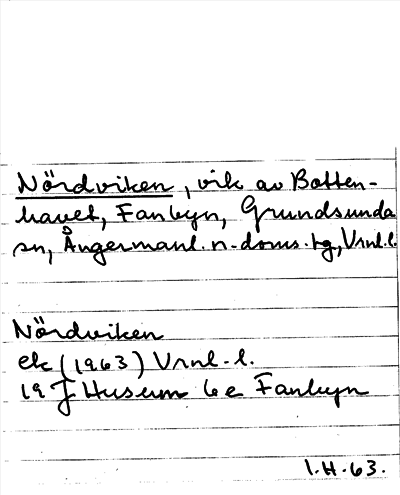 Nördviken, vik av Botten-
havet, Fanbyn, Grundsunda
sn, Ångermanl. n. doms. tg, Vrnl. l.
Nördviken
ek (1963) Vrnl. l.
19 J Husum 6e Fanbyn
1.H.63.